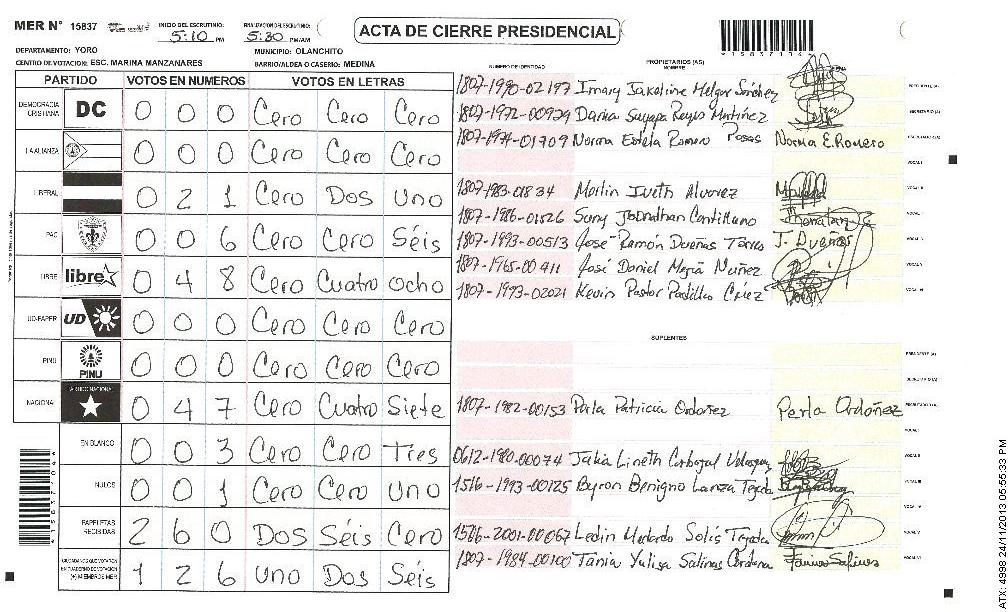 MER N° 15837
INICIO DEL ESCRUTINIO: 5:10 PM
FINALIZACION DEL ESCRUTINIO: 5:30 PM/AM
ACTA DE CIERRE PRESIDENCIAL
DEPARTAMENTO: YORO
MUNICIPIO: OLANCHITO
CENTRO DE VOTACION: ESC. MARINA MANZANARES
BARRIO/ALDEA O CASERIO: MEDINA
PARTIDO VOTOS EN NUMEROS VOTOS EN LETRAS
DEMOCRACIA CRISTIANA DC 0 0 0 Cero Cero Cero
LA ALIANZA 0 0 0 Cero Cero Cero
LIBERAL 0 2 1 Cero Dos Uno
PAC 0 0 6 Cero Cero Séis
LIBRE libre 0 4 8 Cero Cuatro ocho
UD-FAPER UD 0 0 0 Cero Cero Cero
PINU PINU 0 0 0 Cero Cero Cero
NACIONAL PARTIDO NACIONAL 0 4 7 Cero Cuatro Siete
EN BLANCO 0 0 3 Cero Cero Tres
NULOS 0 0 1 Cero Cero Uno
PAPELETAS RECIBIDAS 2 6 0 Dos Séis Cero
CIUDADANOS QUE VOTARON EN CUADERNO DE VOTACION (+) MIEMBROS MER 1 2 6 Uno Dos Séis
NUMERO DE IDENTIDAD
PROPIETARIOS (AS)
NOMBRE
1807-1990-02197 Melgar Sánchez PRESIDENTE (A)
1807-1972-00929 Darina Suyapa Reyes Martínez SECRETARIO (A)
1807-1974-01709 Norma Estela Romero Posas Norma E. Romero ESCRUTADOR (A)
VOCAL I
1807-1983-01834 Merlin Iveth Alvarez VOCAL II
1807-1986-01526 Suny Jhonathan Cantillano
1807-1993-00513 José Ramón Dueñas Torres J. Dueñas
1807-1965-00411 José Daniel Mejía Nuñez
1807-1993-02021 Kevin Pastor Padilla
SUPLENTES
PRESIDENTE (A)
SECRETARIO (A)
1807-1982-00153 Perla Patricia Ordoñez Perla Ordóñez ESCRUTADOR (A)
VOCAL I
0612-1980-00074 Lineth Carbajal Velasquez VOCAL II
1516-1993-00125 Byron Benigno Lanza Tejeda VOCAL III
VOCAL IV
Ledin Medardo Solís VOCAL V
1807-1984-00100 Tania Yulisa Salinas Cardona VOCAL VI
ATX: 4998 24/11/2013 05:55:33 PM